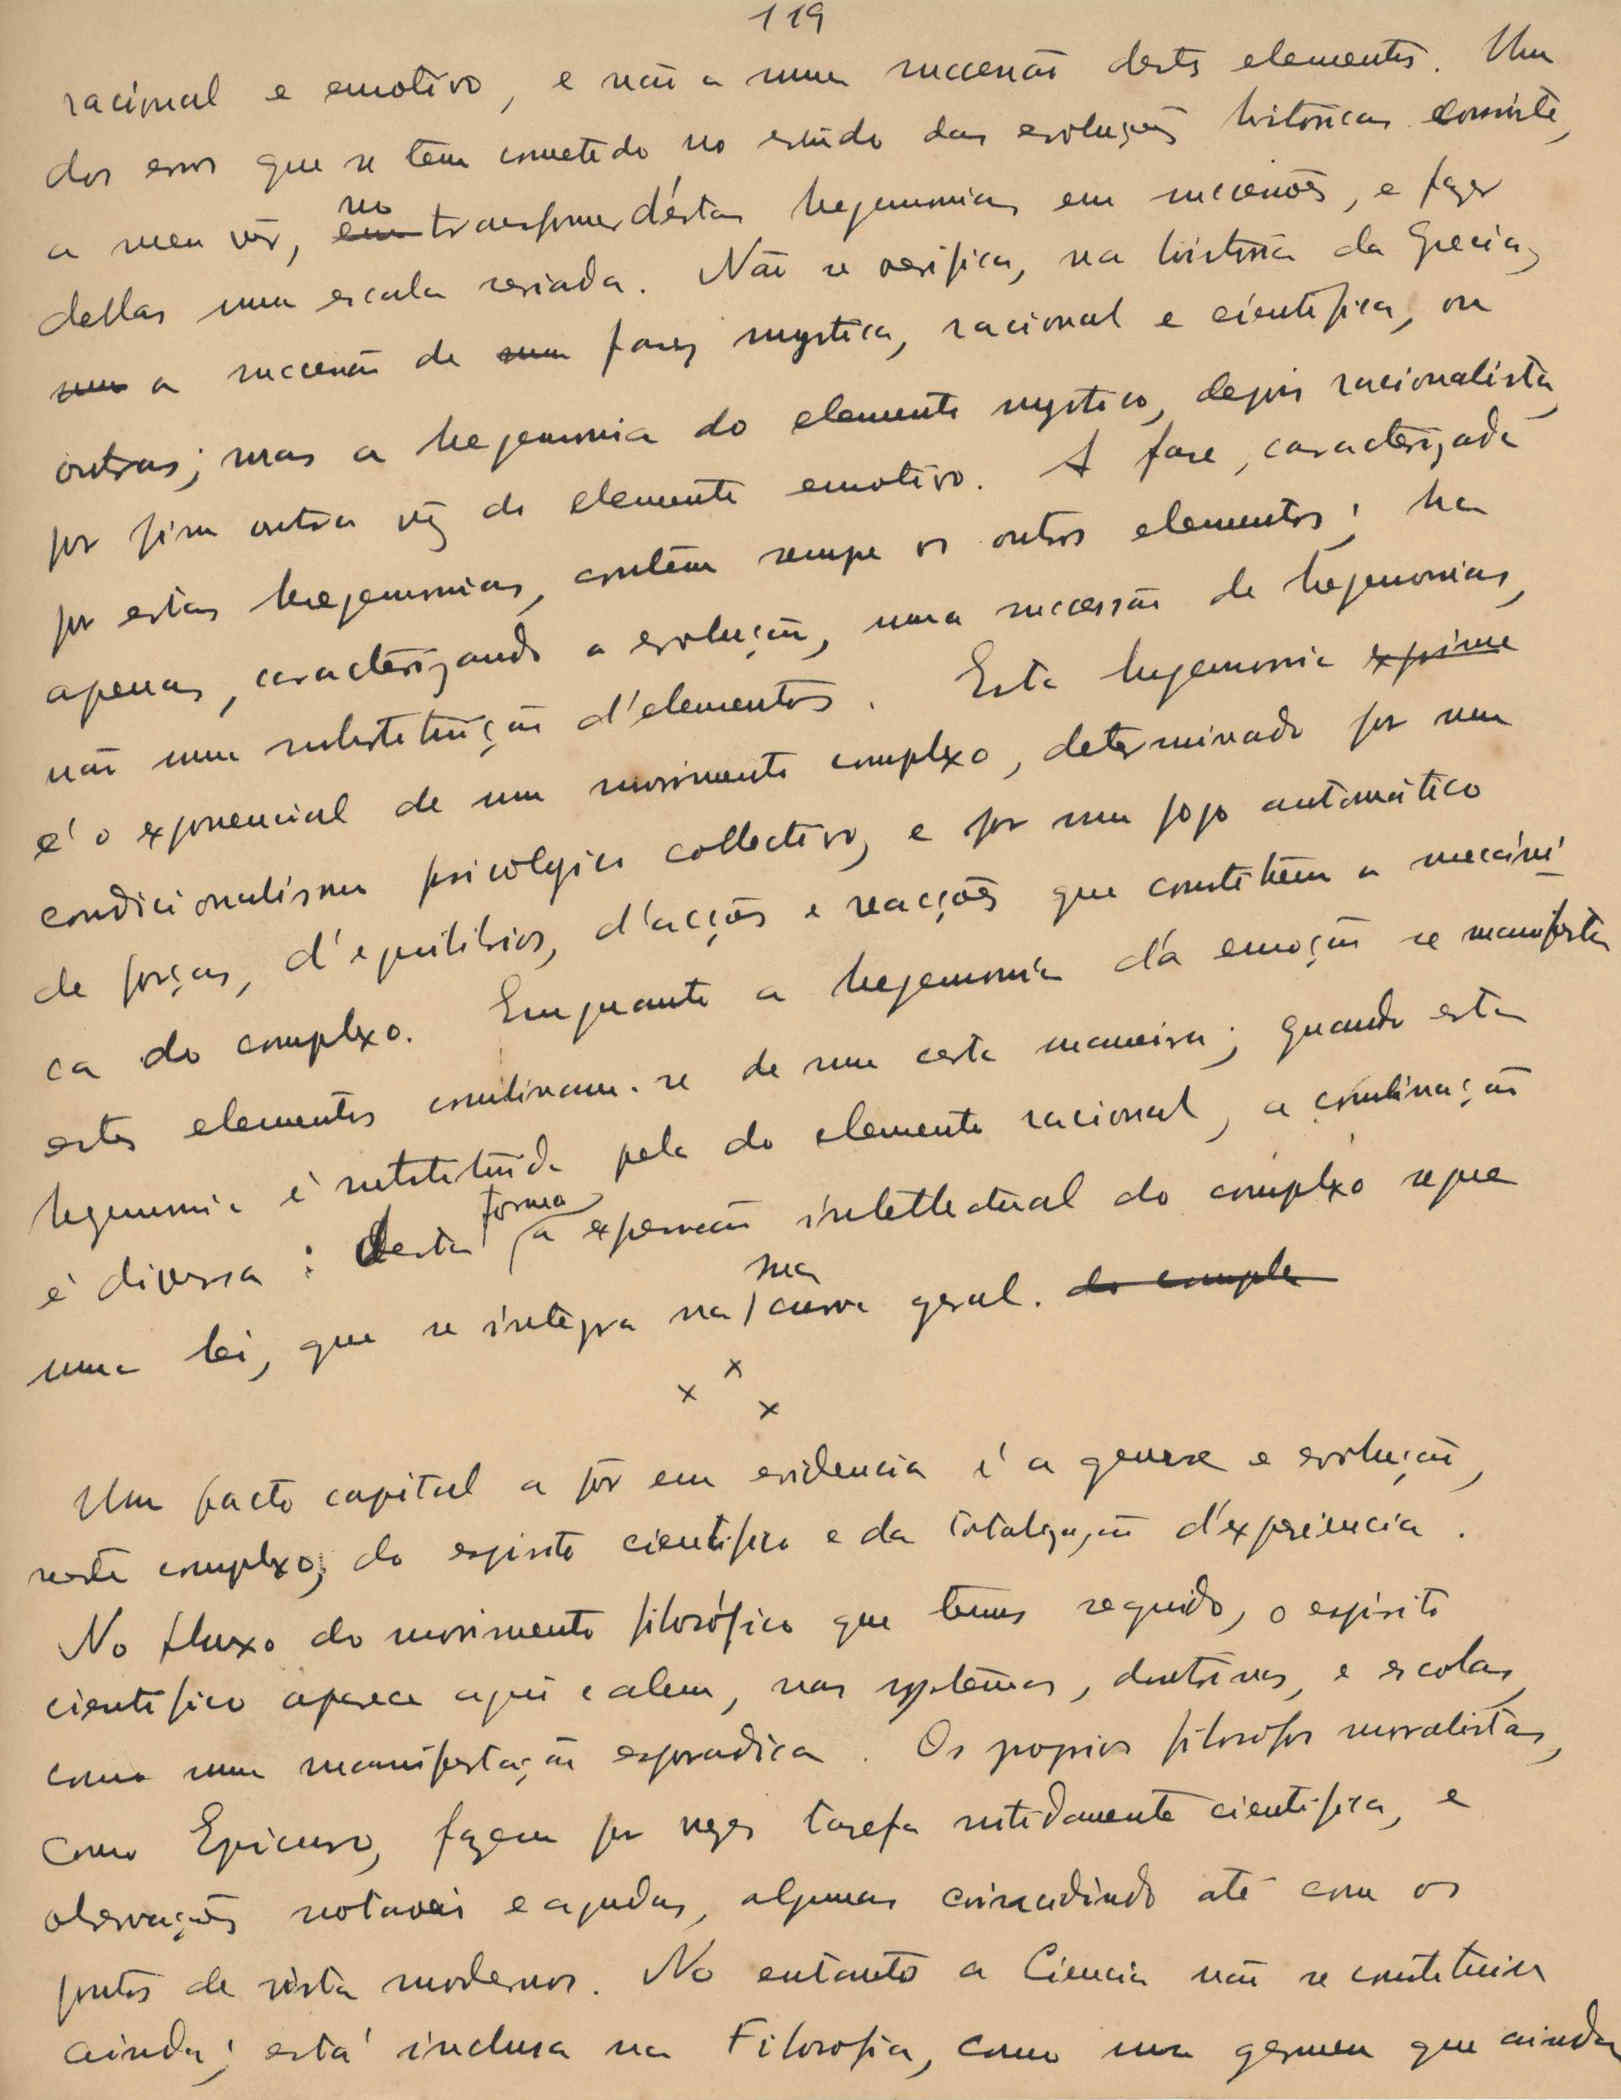 119
racional e emotivo, e não a uma successão destes elementos. Um
dos erros que se tem cometido no estudo das evoluções históricas consiste,
a meu vêr, em no transformar d'éstas hegemonias em successões, e fazer
dellas uma escala seriada. Não se verifica, na história da Grecia,
uma a successão de uma fases mystica, racional e científica, ou
outras; mas a hegemonia do elemento mystico, depois racionalista,
por fim outra vez do elemento emotivo. A fase, caracterizada
por estas hegemonias, contêm sempre os outros elementos; ha
apenas, caracterizando a evolução, uma successão de hegemonias,
não uma substituição d'elementos. Esta hegemonia exprime
é o exponencial de um movimento complexo, determinado por um
condicionalismo psicológico collectivo, e por um jogo automático
de forças, d'equilibrios, d'acções e reacções que constituem a mecâni
ca do complexo. Emquanto a hegemonia da emoção se manifesta
estes elementos combinam-se de uma certa maneira; quando esta
hegemonia é substituída pela do elemento racional, a combinação
é diversa: desta forma a expressão intellectual do complexo segue
uma lei, que se integra na sua curva geral. do comple
x x x
Um facto capital a pôr em evidencia é a genese e evolução,
neste complexo, do espirito cientifico e da totalização d'experiencia.
No fluxo do movimento filosófico que temos seguido, o espirito
cientifico aparece aqui e alem, nos systemas, doutrinas, e escolas,
como uma manifestação esporadica. Os proprios filosofos moralistas,
como Epicuro, fazem por vezes tarefa nitidamente cientifica, e
observações notaveis e agudas, algumas coincidindo até com os
pontos de vista modernos. No entanto a Ciencia não se constituiu
ainda; está inclusa na Filosofia, como um germen que ainda